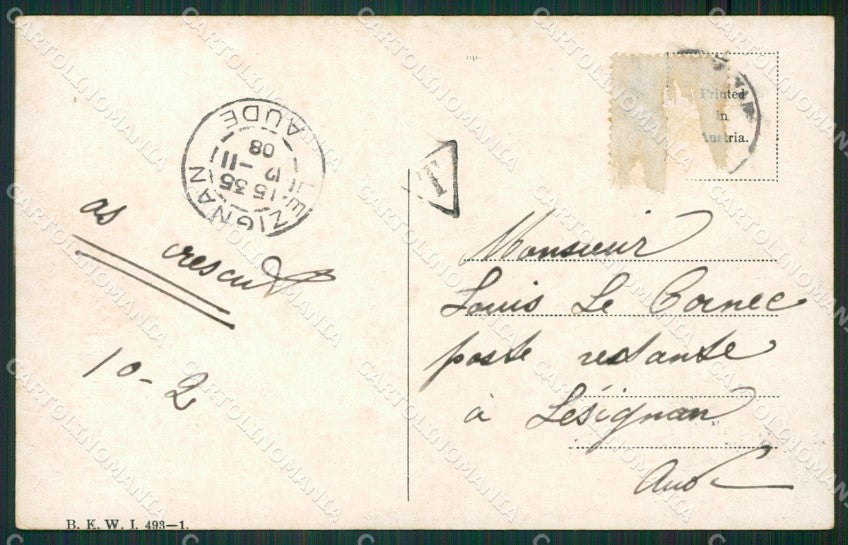 Printed
in
Austria.
LEZIGNAN
15 35
12 -11
08
AUDE
T
as
crescut
10-2
Monsieur
Louis Le Cornec
poste restante
à Lésignan
Aude
B. K. W. I. 493—1.
CARTOLINOMANIA